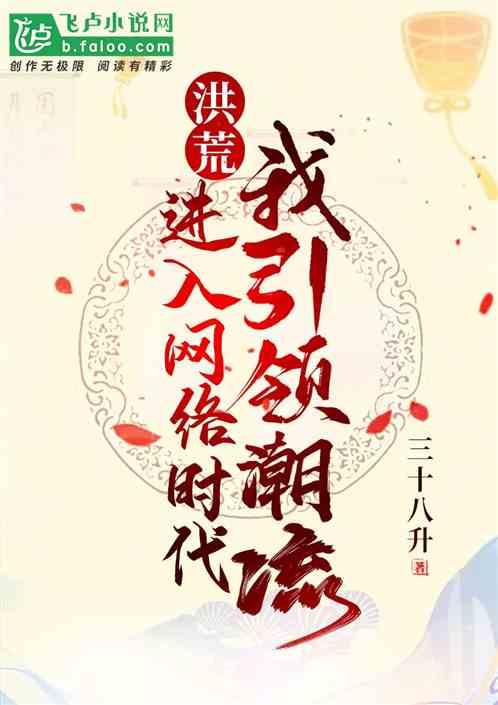 飞卢小说网
b.faloo.com
创作无极限 阅读有精彩
洪荒
进入网络时代
我引领潮流
三十八升 著